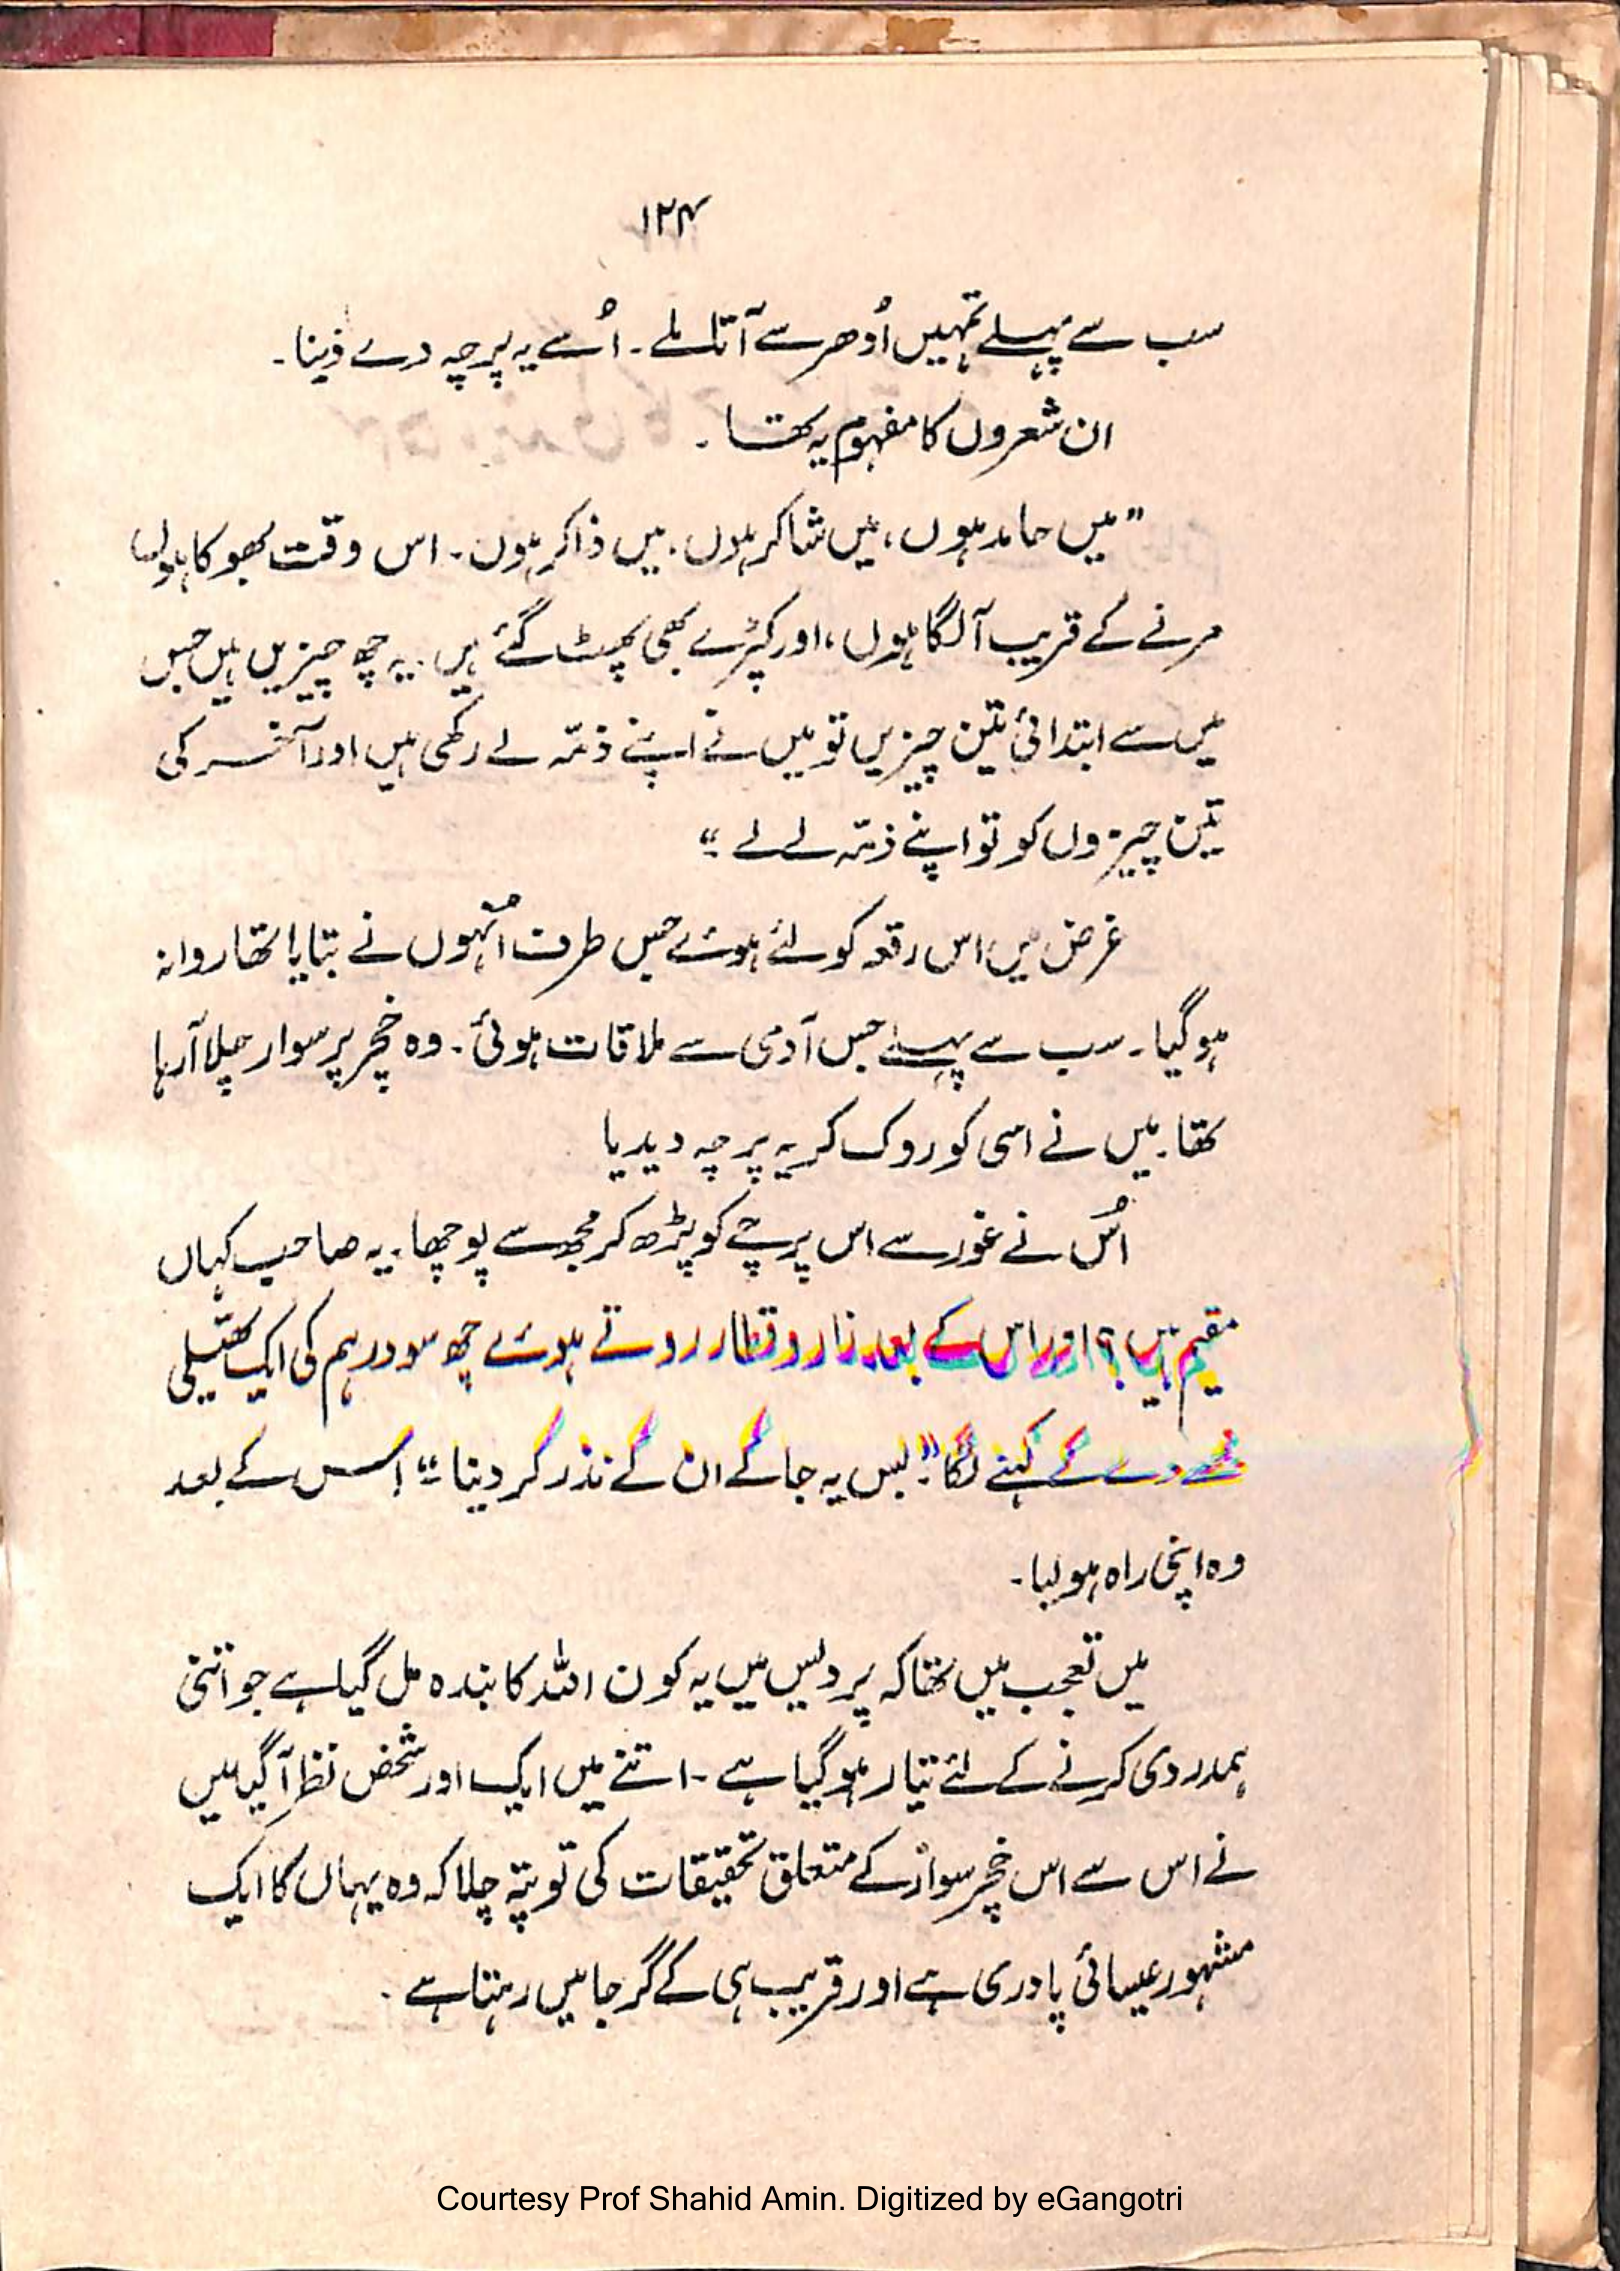 ۱۲۴
سب سے پہلے تمہیں اُدھر سے آتا ملے۔ اُسے یہ پرچہ دے دینا۔
ان شعروں کا مفہوم یہ تھا۔
”میں حامد ہوں، میں شاکر ہوں، میں ذاکر ہوں۔ اس وقت بھوکا ہوں
مرنے کے قریب آلگا ہوں، اور کپڑے بھی پھٹ گئے ہیں۔ یہ چھ چیزیں ہیں جس
میں سے ابتدائی تین چیزیں تو میں نے اپنے ذمّہ لے رکھی ہیں اور آخر کی
تین چیزوں کو تو اپنے ذمّہ لے لے ۔“
غرض میں اس رقعہ کو لئے ہوئے جس طرف اُنہوں نے بتایا تھا روانہ
ہوگیا۔ سب سے پہلے جس آدمی سے ملاقات ہوئی۔ وہ خچر پر سوار چلا آرہا
تھا۔ میں نے اسی کو روک کر یہ پرچہ دیدیا
اُس نے غور سے اس پرچے کو پڑھ کر مجھ سے پوچھا۔ یہ صاحب کہاں
مقیم ہیں؟ اور اس کے بعد زار و قطار روتے ہوئے چھ سو درہم کی ایک تھیلی
مجھے دے کے کہنے لگا۔ ”بس یہ جا کے ان کے نذر کر دینا ۔“ اس کے بعد
وہ اپنی راہ ہولیا۔
میں تعجب میں تھا کہ پردیس میں یہ کون اللہ کا بندہ مل گیا ہے جو اتنی
ہمدردی کرنے کے لئے تیار ہوگیا ہے۔ اتنے میں ایک اور شخص نظر آگیا میں
نے اس سے اس خچر سوار کے متعلق تحقیقات کی تو پتہ چلا کہ وہ یہاں کا ایک
مشہور عیسائی پادری ہے اور قریب ہی کے گرجا میں رہتا ہے۔
Courtesy Prof Shahid Amin. Digitized by eGangotri